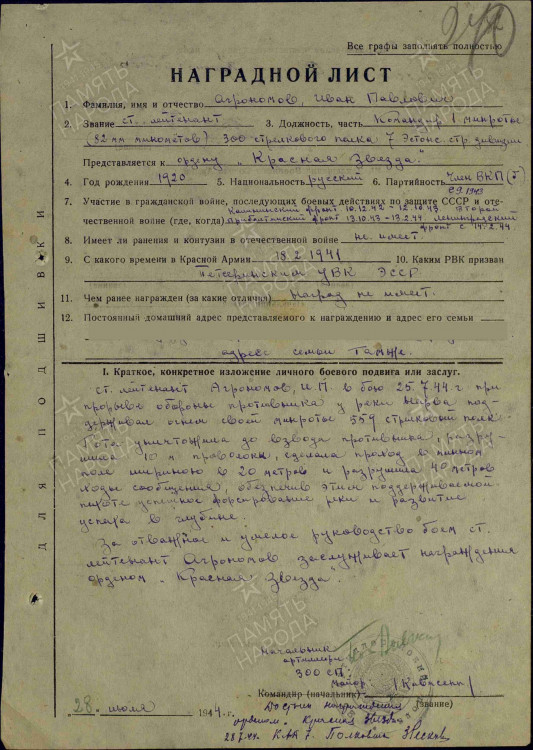 Все графы заполнять полностью
НАГРАДНОЙ ЛИСТ
1. Фамилия, имя и отчество Агрономов, Иван Павлович
2. Звание ст. лейтенант 3. Должность, часть Командир 1 минроты
(82 мм минометов) 300 стрелкового полка 7 Эстонс. стр. дивизии
Представляется к ордену „Красная Звезда"
4. Год рождения 1920 5. Национальность русский 6. Партийность Член ВКП(б)
с 1943
7. Участие в гражданской войне, последующих боевых действиях по защите СССР и оте-
чественной войне (где, когда) Калининский фронт 10.12.42 - 12.10.43. Второй
Прибалтийский фронт 13.10.43 - 13.2.44. Ленинградский
фронт с 14.2.44.
8. Имеет ли ранения и контузии в отечественной войне не имеет
9. С какого времени в Красной Армии 18.2.1941 10. Каким РВК призван
УВК ЭССР
11. Чем ранее награжден (за какие отличия) Наград не имеет.
12. Постоянный домашний адрес представляемого к награждению и адрес его семьи
адрес семьи Там же.
I. Краткое, конкретное изложение личного боевого подвига или заслуг.
ст. лейтенант Агрономов, И.П. в бою 25.7.44 г при
прорыве обороны противника у реки Нарва под-
держивал огнем своей минроты 559 стрелковый полк
Рота уничтожила до взвода противника, разру-
шила 10 м проволоки, сделала проход в минном
поле шириною в 20 метров и разрушила 40 метров
хода сообщения, обеспечив этим поддерживаемой
пехоте успешное форсирование реки и развитие
успеха в глубине.
За отважное и умелое руководство боем ст.
лейтенант Агрономов заслуживает награждения
орденом „Красная Звезда".
Начальник
артиллерии
300 СП:
майор:
Командир (начальник)
(звание)
28 июля 1944 г.
Достоин награждения
орденом Красная Звезда
28.7.44. К-р 7. Полковник
ДЛЯ ПОДШИВКИ
ПАМЯТЬ НАРОДА